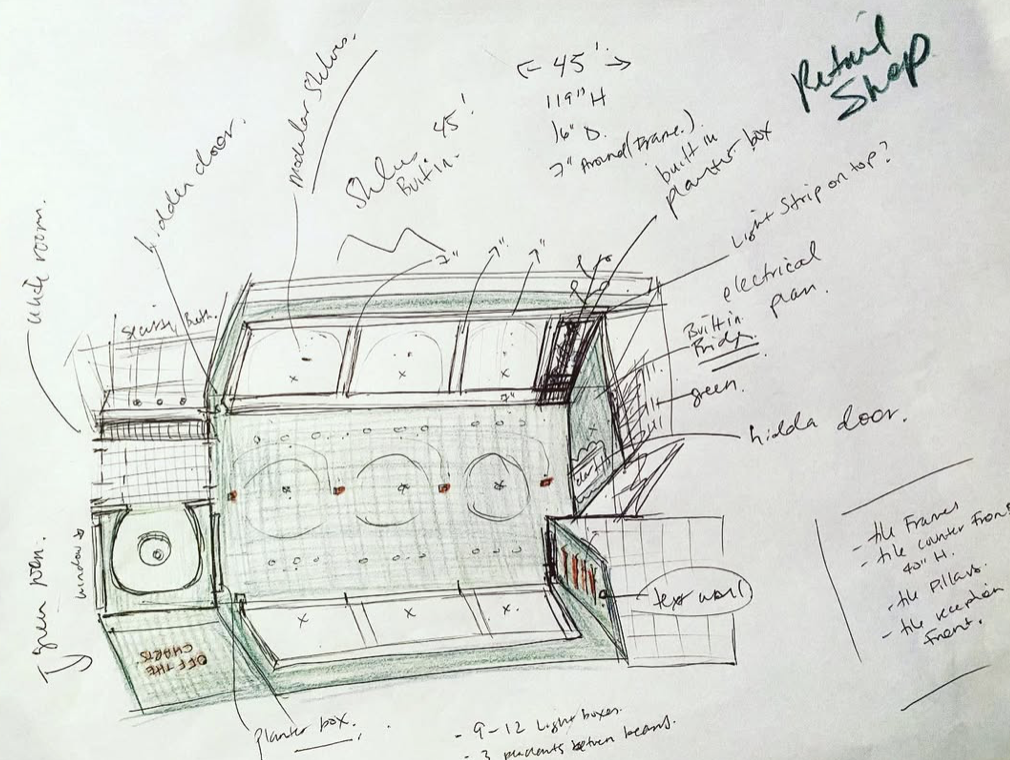 Retail
Shop
← 45' →
119" H
16" D.
7" Around (Frame.)
built in
planter box
Light Strip on top?
electrical
plan.
Built in
green.
hidda door.
45'
Built in.
modular Shlvs.
hidden door.
white room.
7"
7"
7"
7"
text wall
- tile Frames
- tile counter Front
40" H.
- tile Pillars.
- tile reception
Front.
window
green room.
OFF THE
CHARTS.
planter box.
- 9-12 Light boxes.
- 3 pendants between beams.